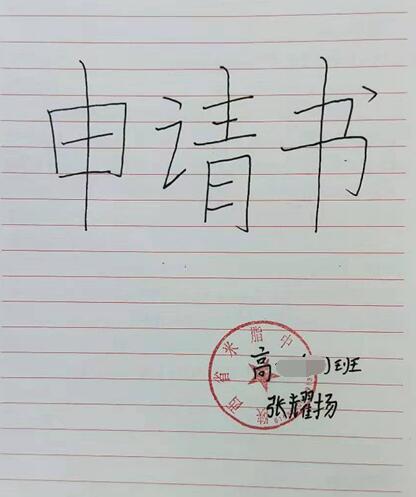 申请书
陕西省米脂中
高一 )班
张耀扬